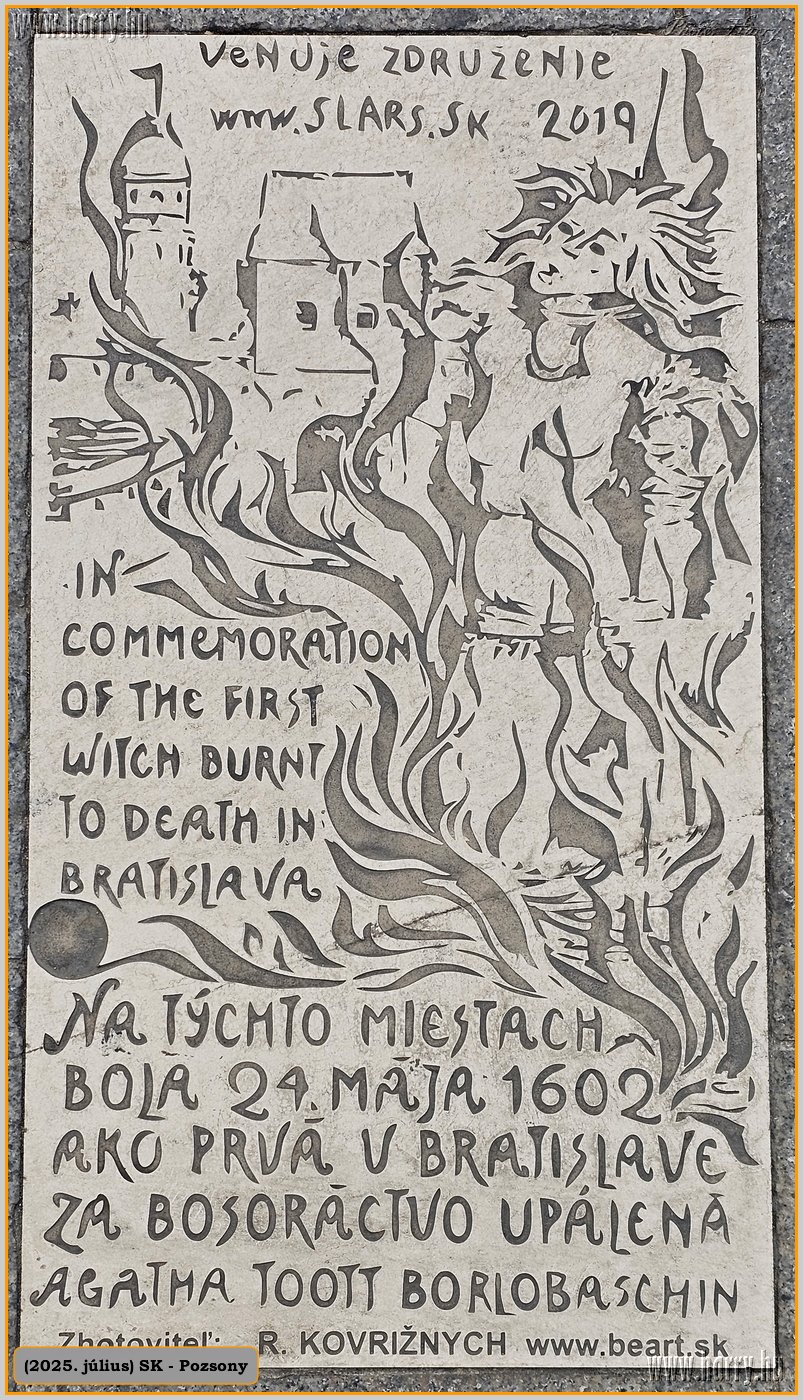 www.horry.hu
VeNUje ZDRUŽENIE
www.SLARS.SK 2019
IN
COMMEMORATION
OF THE FIRST
WITCH BURNT
TO DEATH IN
BRATISLAVA
NA TÝCHTO MIESTACH
BOLA 24. MÁJA 1602
AKO PRVÁ V BRATISLAVE
ZA BOSORÁCTVO UPÁLENÁ
AGATHA TOOTT BORLOBASCHIN
Zhotoviteľ: R. KOVRIŽNYCH www.beart.sk
(2025. július) SK - Pozsony
www.horry.hu